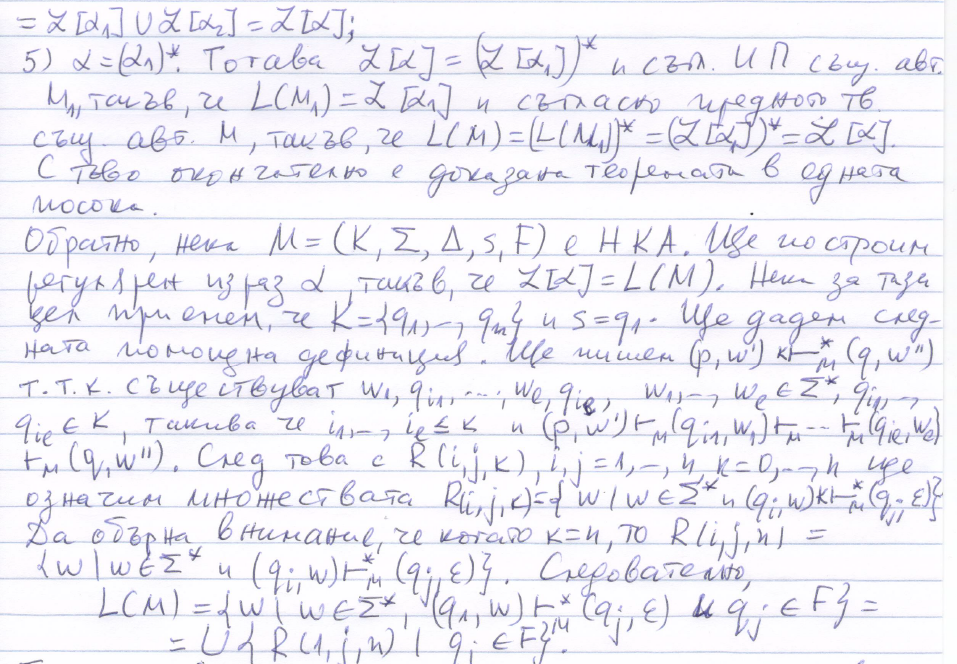 = ℒ[α₁] ∪ ℒ[α₂] = ℒ[α];
5) α = (α₁)*. Тогава ℒ[α] = (ℒ[α₁])* и съгл. ИП същ. авт.
M₁, такъв, че L(M₁) = ℒ[α₁] и съгласно предното тв.
същ. авт. M, такъв, че L(M) = (L(M₁))* = (ℒ[α₁])* = ℒ[α].
С това окончателно е доказана теоремата в едната
посока.
Обратно, нека M = (K, Σ, Δ, s, F) е НКА. Ще построим
регулярен израз α, такъв, че ℒ[α] = L(M). Нека за тази
цел приемем, че K = {q₁, –, qₙ} и s = q₁. Ще дадем след-
ната помощна дефиниция. Ще пишем (p, w') k⊢*ₘ (q, w'')
т.т.к. съществуват w₁, qᵢ₁, ..., wₑ, qᵢₑ, w₁, –, wₑ ∈ Σ*, qᵢ₁, –,
qᵢₑ ∈ K, такива че i₁, –, iₑ ≤ k и (p, w') ⊢ₘ (qᵢ₁, w₁) ⊢ₘ ... ⊢ₘ (qᵢₑ, wₑ)
⊢ₘ (q, w''). След това с R(i,j,k), i,j = 1, –, n, k = 0, –, n ще
означим множествата R(i,j,k) = { w | w ∈ Σ* и (qᵢ, w) k⊢*ₘ (qⱼ, ε)}
Да обърна внимание, че когато k = n, то R(i,j,n) =
{w | w ∈ Σ* и (qᵢ, w) ⊢*ₘ (qⱼ, ε)}. Следователно,
L(M) = {w | w ∈ Σ*, (q₁, w) ⊢*ₘ (qⱼ, ε) и qⱼ ∈ F} =
= ∪{ R(1,j,n) | qⱼ ∈ F}.